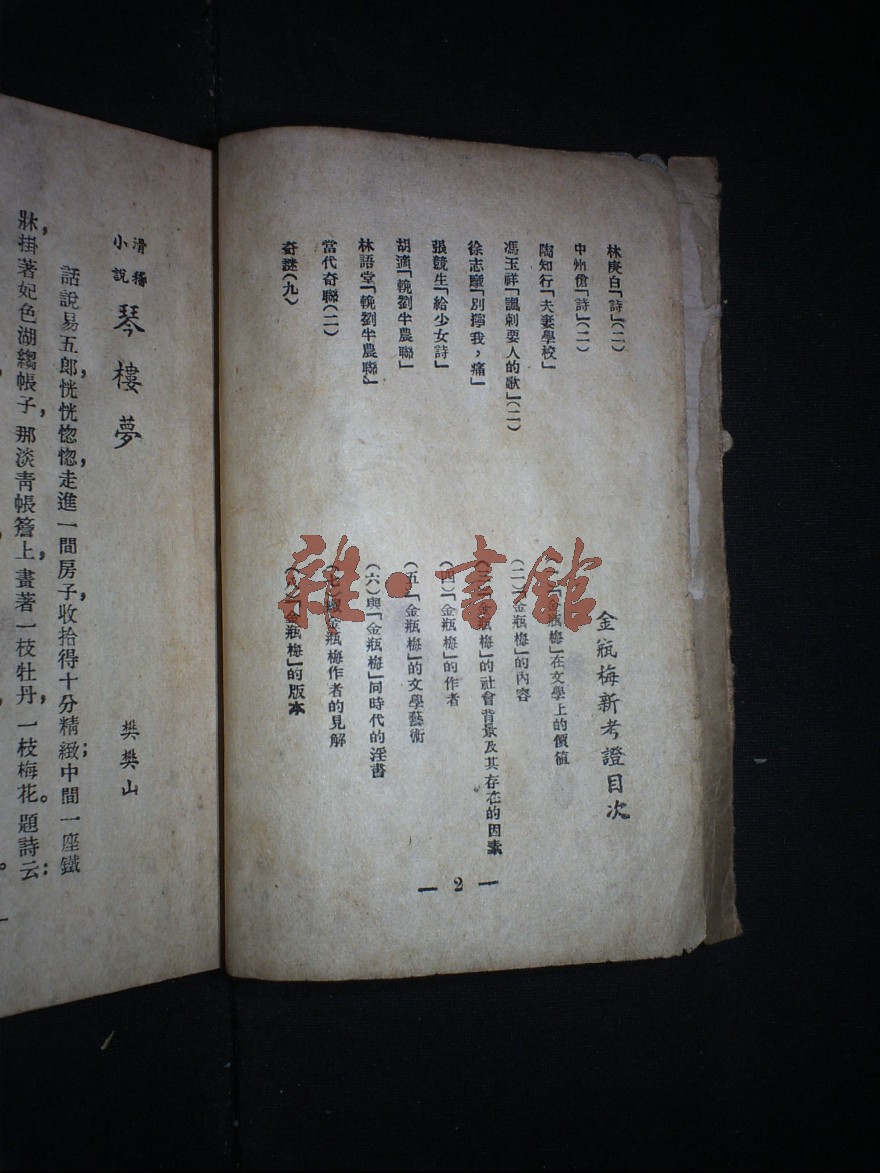 林庚白「詩」(二)
中州傖「詩」(二)
陶知行「夫妻學校」
馮玉祥「諷刺要人的歌」(二)
徐志摩「別擰我，痛」
張競生「給少女詩」
胡適「輓劉半農聯」
林語堂「輓劉半農聯」
當代奇聯(二)
奇謎(九)
金瓶梅新考證目次
「金瓶梅」在文學上的價值
(二)「金瓶梅」的內容
(三)「金瓶梅」的社會背景及其存在的因素
(四)「金瓶梅」的作者
(五)「金瓶梅」的文學藝術
(六)與「金瓶梅」同時代的淫書
(七)金瓶梅作者的見解
(八)「金瓶梅」的版本
— 2 —
滑稽小說
琴樓夢
樊樊山
話說易五郎恍恍惚惚，走進一間房子，收拾得十分精緻；中間一座鐵
牀，掛著妃色湖縐帳子，那淡青帳簷上，畫著一枝牡丹，一枝梅花。題詩云：
雜·書館